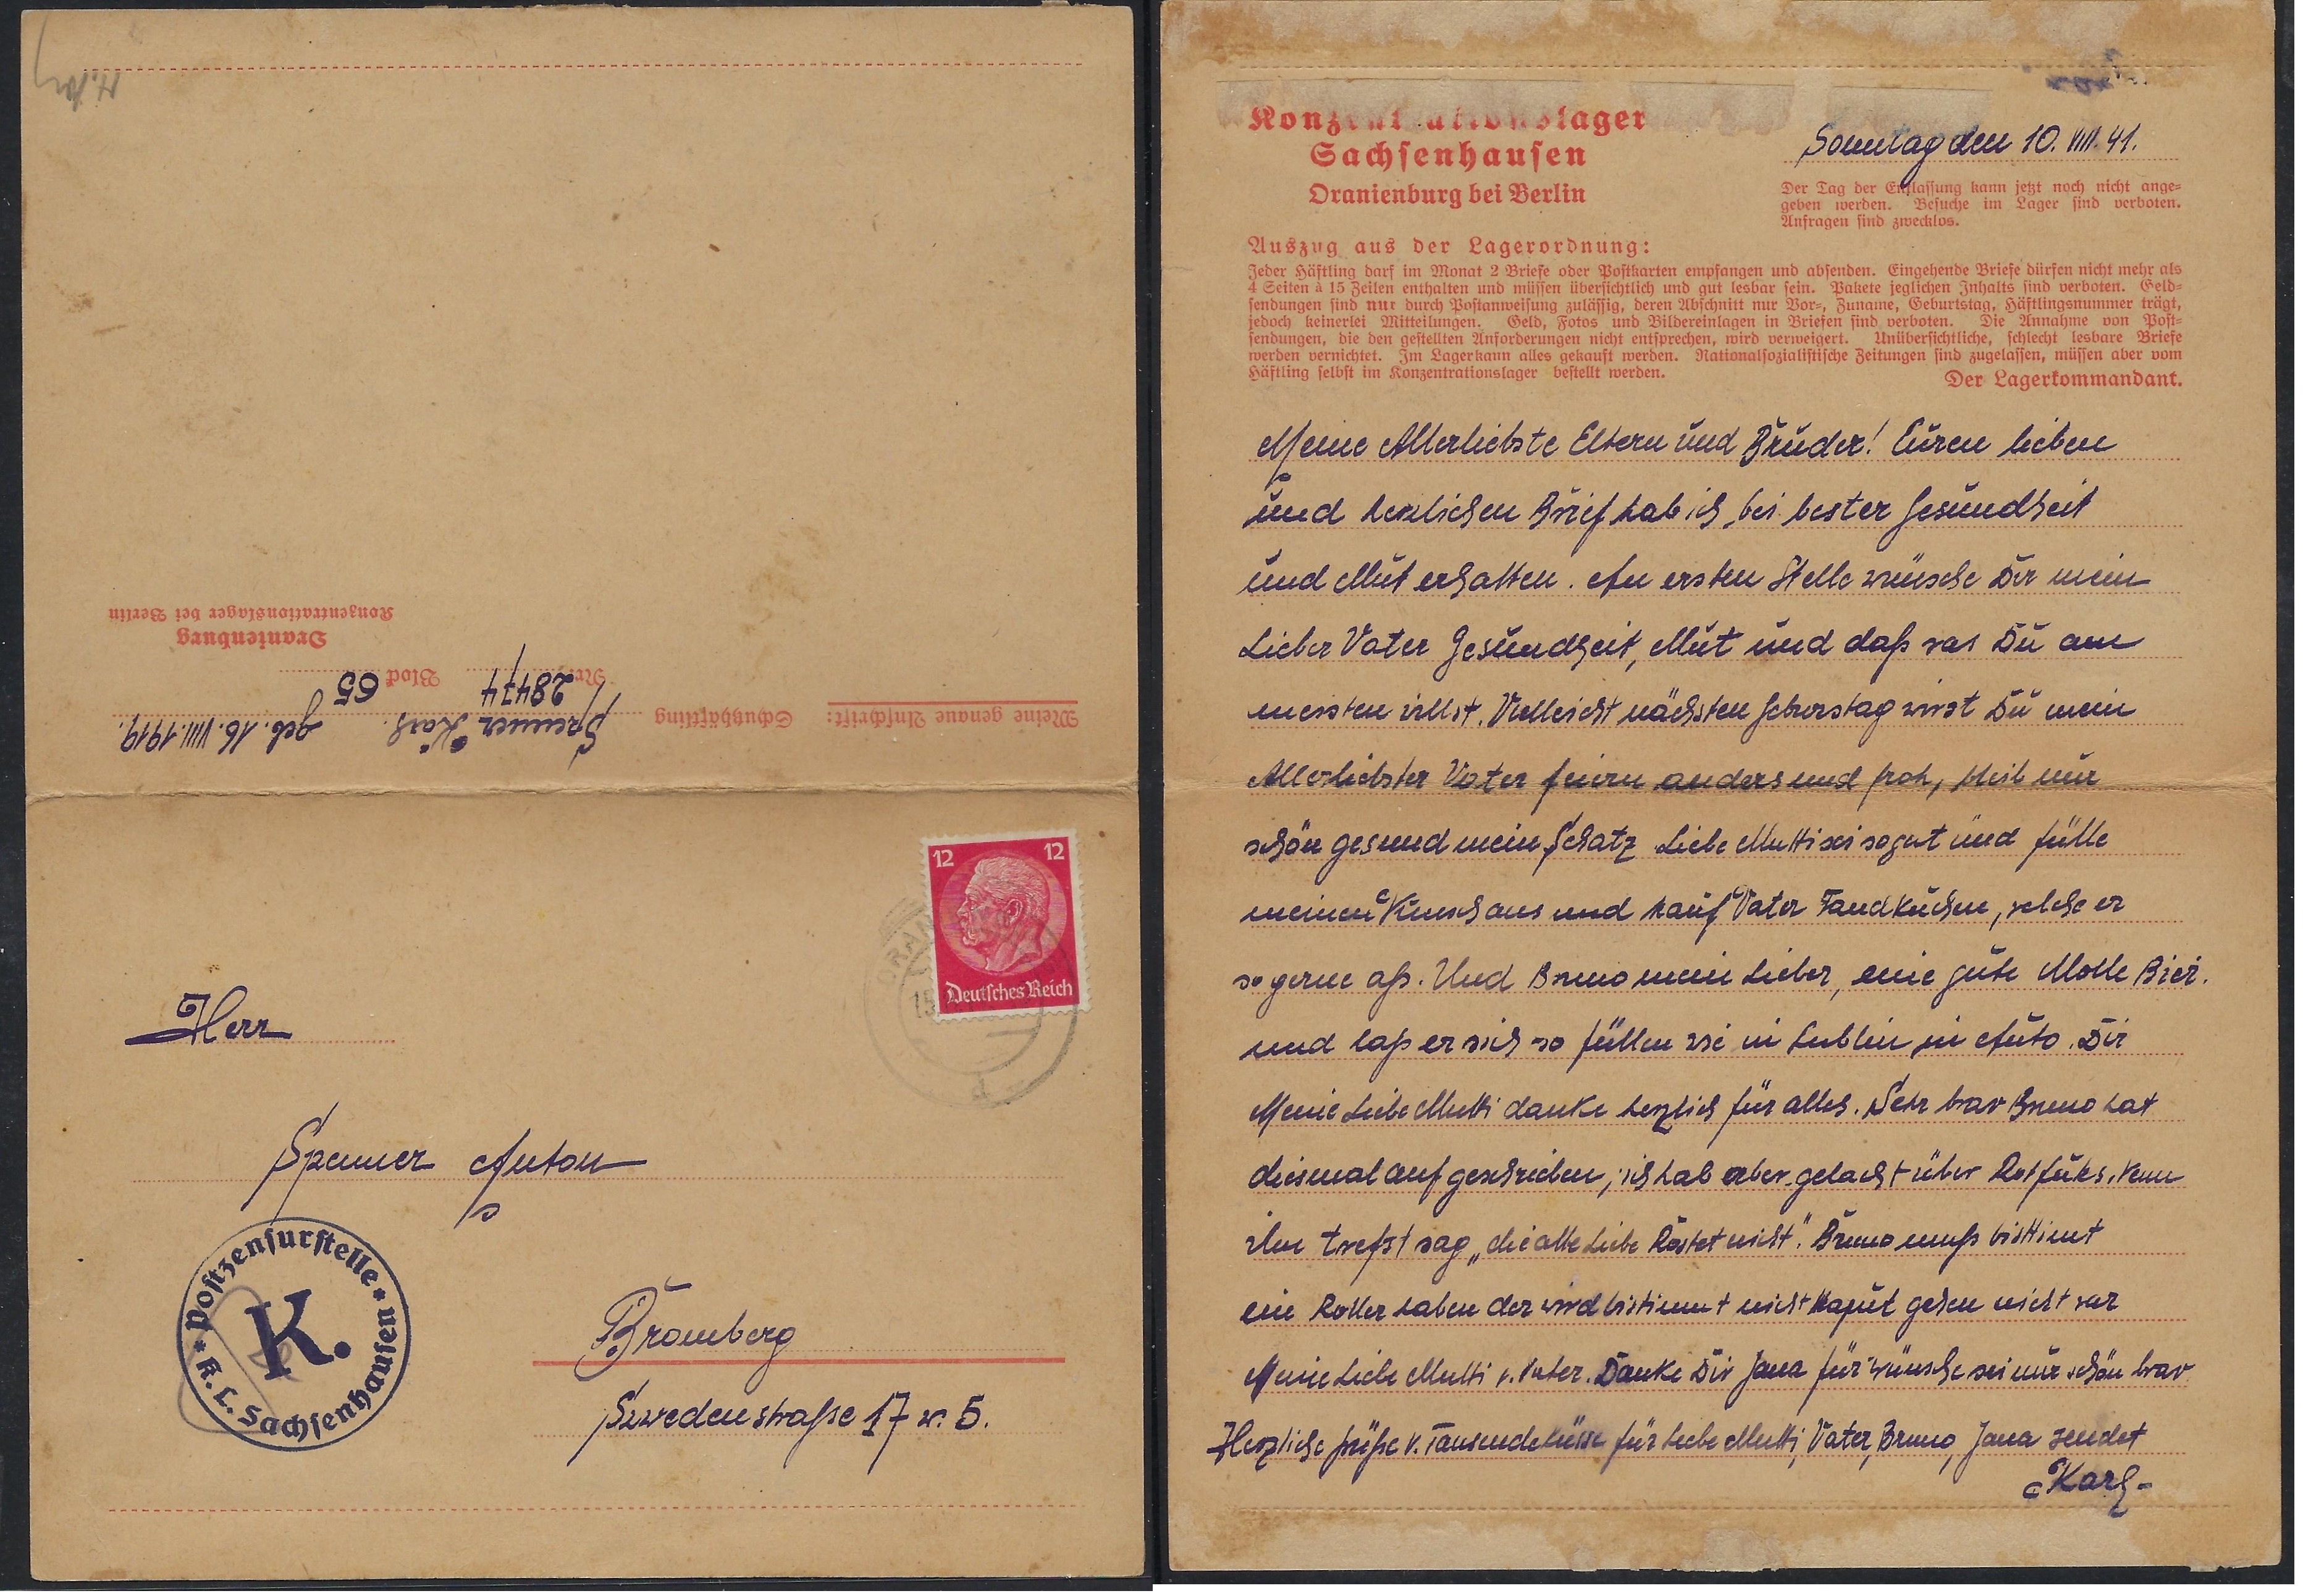 Meine genaue Anschrift:
Schutzhäftling
Spanner Karl. geb. 16. VIII. 1919.
Nr. 28474 Block 65
Oranienburg
Konzentrationslager bei Berlin
12 12
Deutsches Reich
Herr
Spanner Anton
Bromberg
Szwedenstraße 17 w. 5.
Postzensurstelle
K.
K. L. Sachsenhausen
Konzentrationslager
Sachsenhausen
Oranienburg bei Berlin
Sonntag den 10. VIII. 41.
Der Tag der Entlassung kann jetzt noch nicht ange-
geben werden. Besuche im Lager sind verboten.
Anfragen sind zwecklos.
Auszug aus der Lagerordnung:
Jeder Häftling darf im Monat 2 Briefe oder Postkarten empfangen und absenden. Eingehende Briefe dürfen nicht mehr als
4 Seiten à 15 Zeilen enthalten und müssen übersichtlich und gut lesbar sein. Pakete jeglichen Inhalts sind verboten. Geld-
sendungen sind nur durch Postanweisung zulässig, deren Abschnitt nur Vor-, Zuname, Geburtstag, Häftlingsnummer trägt,
jedoch keinerlei Mitteilungen. Geld, Fotos und Bildereinlagen in Briefen sind verboten. Die Annahme von Post-
sendungen, die den gestellten Anforderungen nicht entsprechen, wird verweigert. Unübersichtliche, schlecht lesbare Briefe
werden vernichtet. Im Lager kann alles gekauft werden. Nationalsozialistische Zeitungen sind zugelassen, müssen aber vom
Häftling selbst im Konzentrationslager bestellt werden.
Der Lagerkommandant.
Meine Allerliebste Eltern und Bruder! Euren lieben
und herzlichen Brief hab ich, bei bester Gesundheit
und Mut erhalten. An ersten Stelle wünsche Dir mein
Lieber Vater Gesundheit, Mut und daß was Du am
mersten willst. Vielleicht nächsten Geburstag wirst Du mein
Allerliebster Vater feiern anders und froh, bleib nur
schön gesund mein Schatz. Liebe Mutti sei so gut und fülle
meinen Wunsch aus und kauf Vater Fandkuchen, welche er
so gerne aß. Und Bruno mein Lieber, eine gute Molle Bier.
und laß er sich so füllen wie in Lublin in Auto. Dir
Meine Liebe Mutti danke herzlich für alles. Sehr brav Bruno hat
diesmal aufgeschrieben, ich hab aber gelacht über Rotfuks. Wenn
ihn trefst sag „die alte Liebe Röstet nicht". Bruno muß bistimt
ein Roller haben der wird bistimmt nicht kaput gehen nicht war
Meine Liebe Mutti v. Vater. Danke Dir Jana für wünsche sei nur schön brav
Herzliche Grüße v. Tausende küsse für Liebe Mutti, Vater, Bruno, Jana sendet
Karl-